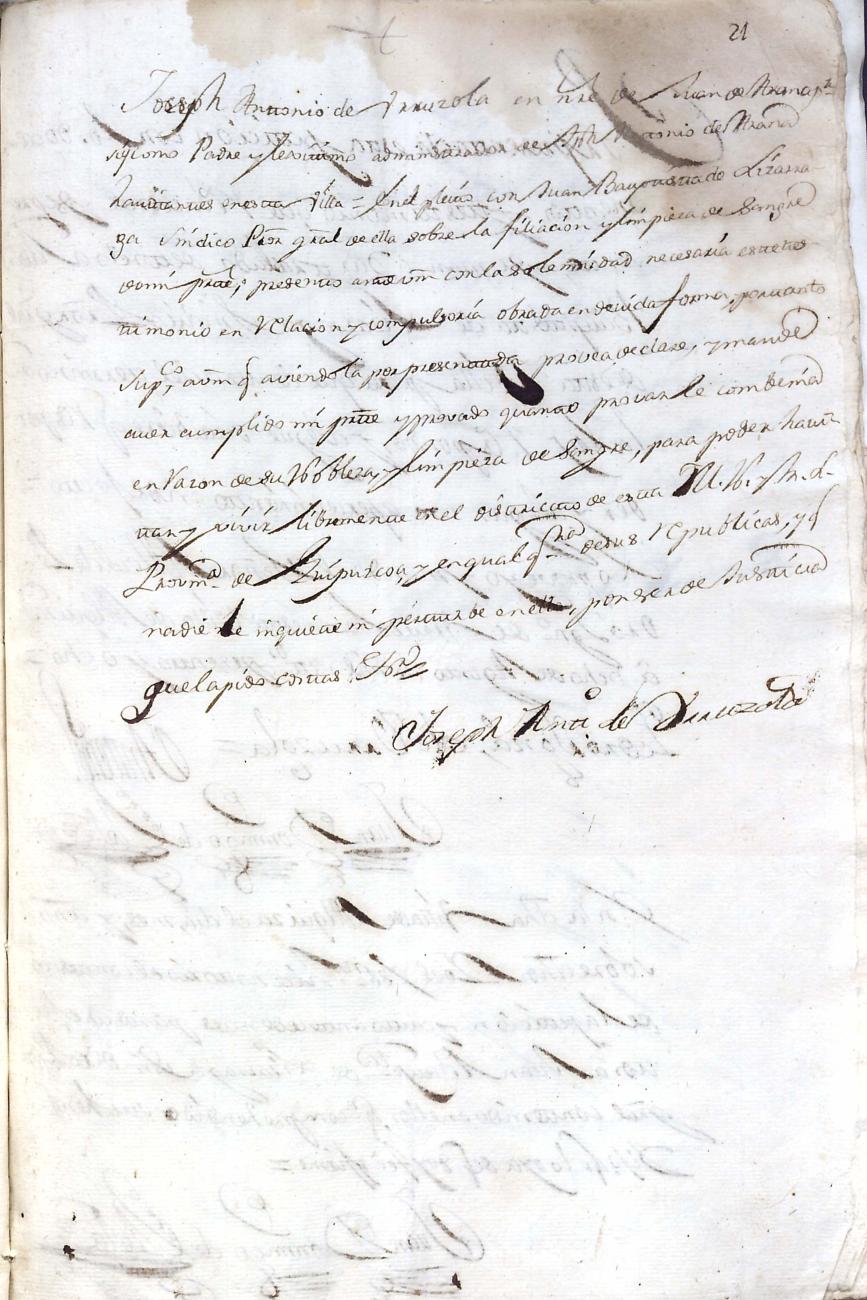 21
Joseph Antonio de Vrruzola en nre de Juan de Arana pr
sy como Padre y lexitimo administrador de Jph Antonio de Arana
havitantes en esta Villa = En el pleito con Juan Bauptista de Lizarra-
ga Sindico Pror gral de ella sobre la filiación y limpieza de Sangre
de mi prte; presento ante vm con la solemnidad necesaria este tes-
timonio en relacion y compulsoria obrada en devida forma, por tanto
Supco a vm q aviendola por presentada provea declare, y mande
aver cumplido mi prte y provado quanto provar le combenia
en razon de su Nobleza, y limpieza de Sangre, para poder havi-
tar y vivir libremente en el districto de esta M. N. y M. L.
Provinca de Guipuzcoa, y en qualqra de sus Republicas, y q
nadie le inquiete ni perturbe en ello, por ser de Justicia
que la pido costas
Joseph Anto de Vrruzola